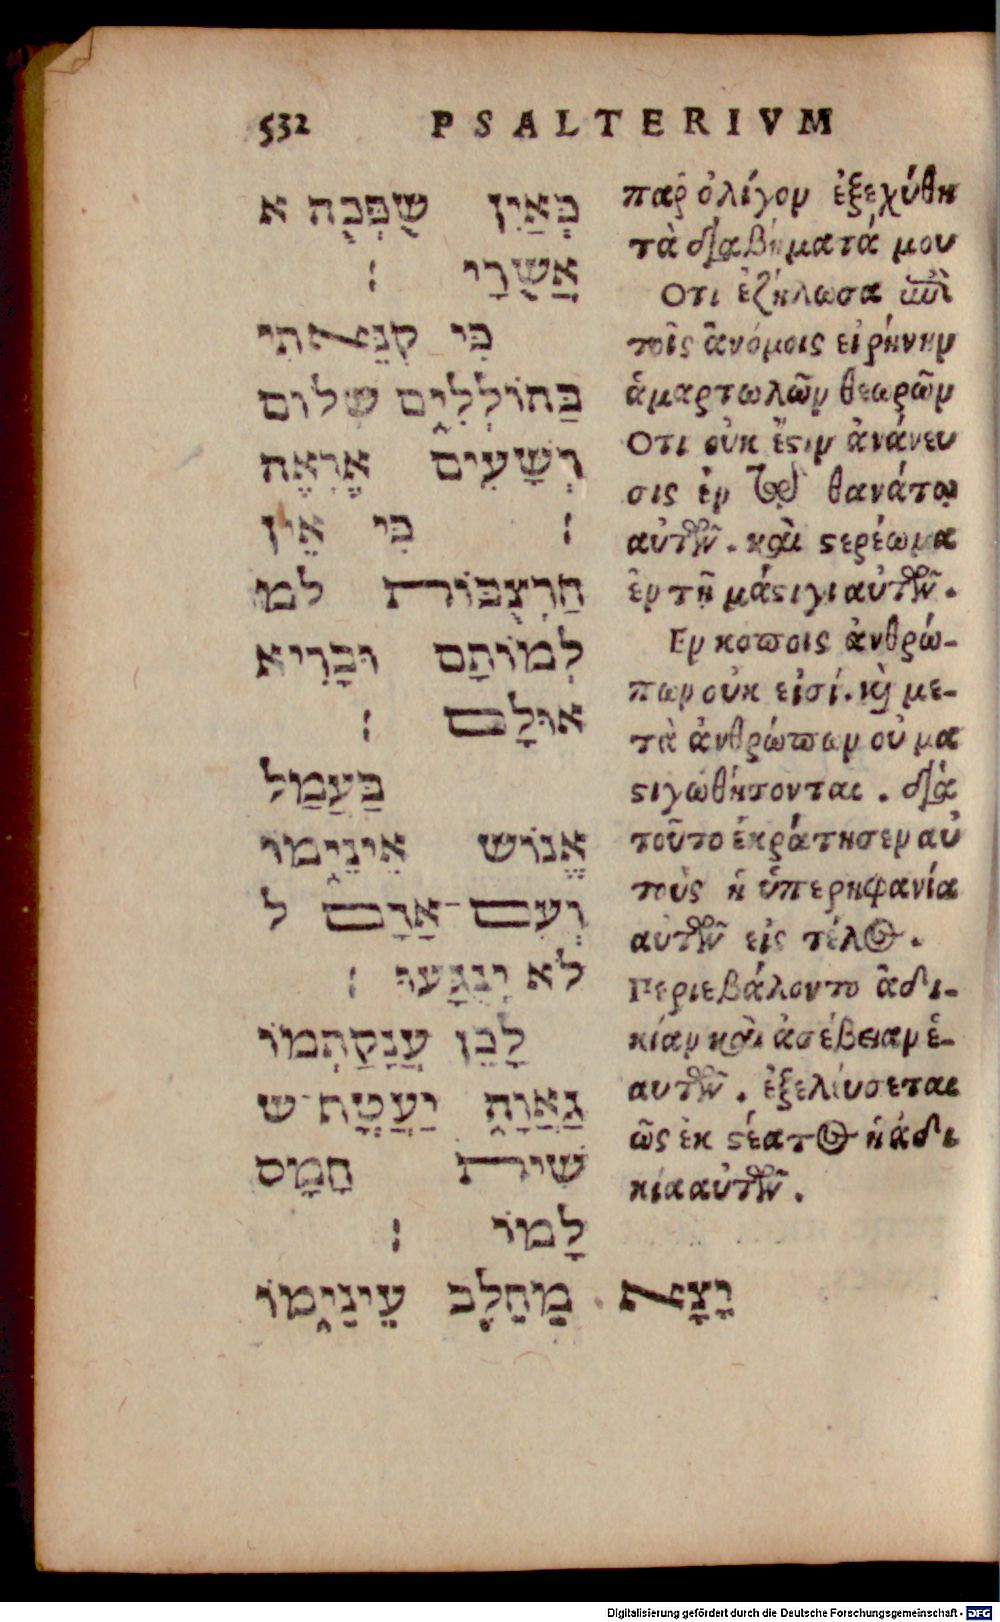 532 PSALTERIVM
כְּאַיִן שֻׁפְּכֻה א
אֲשֻׁרָי ׃
כִּי קִנֵּאתִי
בַּהוֹלְלִים שְׁלוֹם
רְשָׁעִים אֶרְאֶה
׃ כִּי אֵין
חַרְצֻבּוֹת למ
לְמוֹתָם וּבָרִיא
אוּלָם ׃
בַּעֲמַל
אֱנוֹשׁ אֵינֵימוֹ
וְעִם־אָדָם ל
לֹא יְנֻגָּעוּ ׃
לָכֵן עֲנָקַתְמוֹ
גַאֲוָה יַעֲטָף־ש
שִׁית חָמָס
לָמוֹ ׃
יָצָא מֵחֵלֶב עֵינֵימוֹ
παρ ὀλίγον ἐξεχύθη
τὰ διαβήματά μου
Οτι ἐζήλωσα ἐπὶ
τοῖς ἀνόμοις εἰρήνην
ἁμαρτωλῶν θεωρῶν
Οτι οὐκ ἔστιν ἀνάνευ
σις ἐν τῷ θανάτῳ
αὐτῶν. καὶ στερέωμα
ἐν τῇ μάστιγι αὐτῶν.
Εν κοποις ἀνθρώ-
πων οὐκ εἰσί. καὶ με-
τὰ ἀνθρώπων οὐ μα
στιγωθήσονται. διὰ
τοῦτο ἐκράτησεν αὐ
τοὺς ἡ ὑπερηφανία
αὐτῶν εἰς τέλος.
Περιεβάλοντο ἀδι-
κίαν καὶ ἀσέβειαν ἑ-
αυτῶν. ἐξελεύσεται
ὡς ἐκ στέατος ἡ ἀδι
κία αὐτῶν.
Digitalisierung gefördert durch die Deutsche Forschungsgemeinschaft - DFG